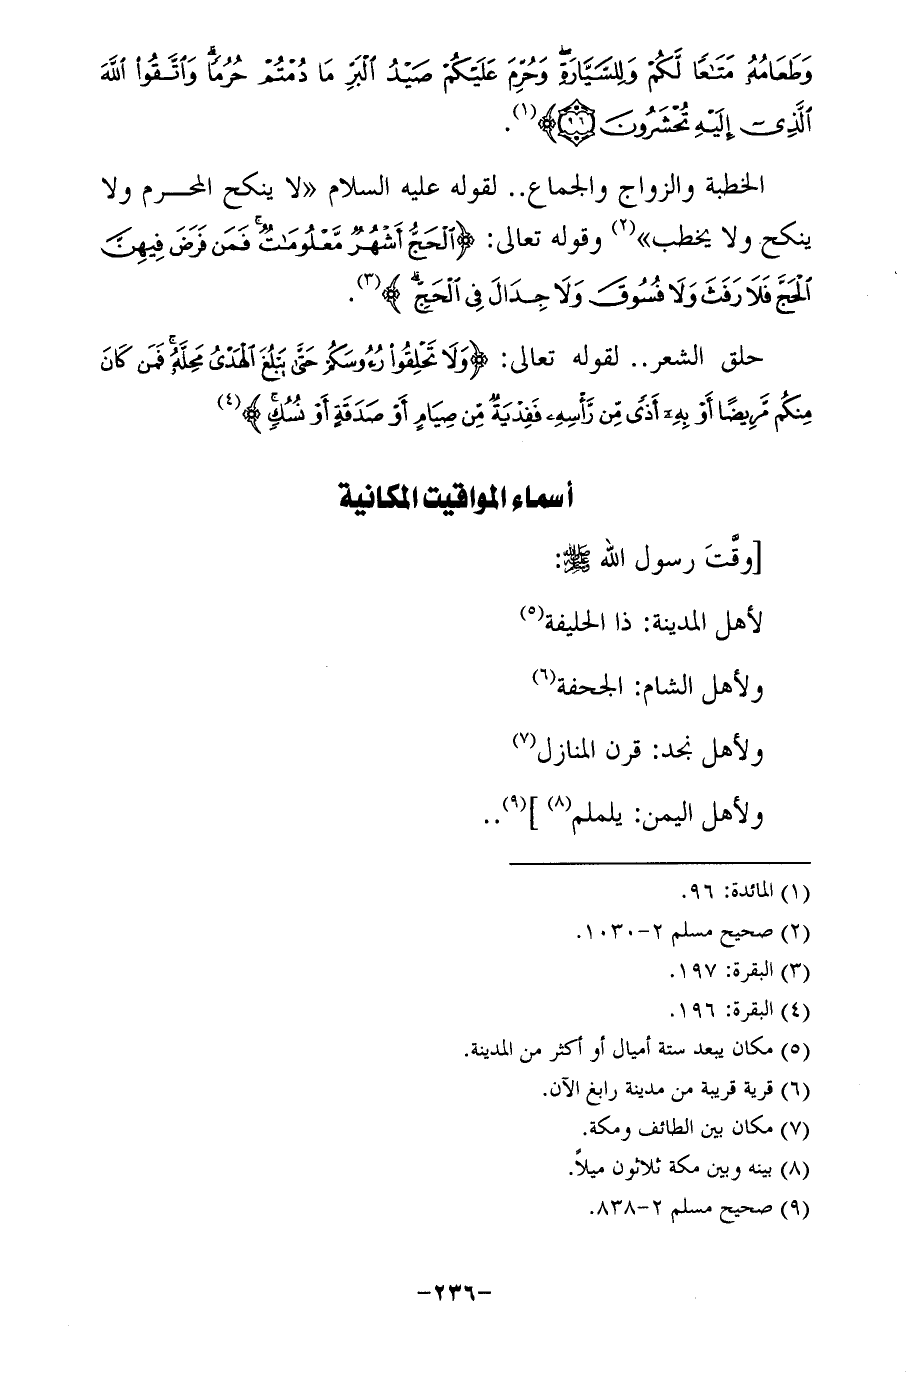 وَطَعَامُهُۥ مَتَـٰعًا لَّكُمْ وَلِلسَّيَّارَةِ ۖ وَحُرِّمَ عَلَيْكُمْ صَيْدُ ٱلْبَرِّ مَا دُمْتُمْ حُرُمًا ۗ وَٱتَّقُوا۟ ٱللَّهَ
ٱلَّذِىٓ إِلَيْهِ تُحْشَرُونَ ٩٦﴾(١).
الخطبة والزواج والجماع.. لقوله عليه السلام «لا ينكح المحرم ولا
ينكح ولا يخطب»(٢) وقوله تعالى: ﴿ٱلْحَجُّ أَشْهُرٌ مَّعْلُومَـٰتٌ ۚ فَمَن فَرَضَ فِيهِنَّ
ٱلْحَجَّ فَلَا رَفَثَ وَلَا فُسُوقَ وَلَا جِدَالَ فِى ٱلْحَجِّ ۗ ﴾(٣).
حلق الشعر.. لقوله تعالى: ﴿وَلَا تَحْلِقُوا۟ رُءُوسَكُمْ حَتَّىٰ يَبْلُغَ ٱلْهَدْىُ مَحِلَّهُۥ ۚ فَمَن كَانَ
مِنكُم مَّرِيضًا أَوْ بِهِۦٓ أَذًى مِّن رَّأْسِهِۦ فَفِدْيَةٌ مِّن صِيَامٍ أَوْ صَدَقَةٍ أَوْ نُسُكٍ ۚ ﴾(٤)
أسماء المواقيت المكانية
[وقَّتَ رسول الله ﷺ:
لأهل المدينة: ذا الحليفة(٥)
ولأهل الشام: الجحفة(٦)
ولأهل نجد: قرن المنازل(٧)
ولأهل اليمن: يلملم(٨) ](٩)..
(١) المائدة: ٩٦.
(٢) صحيح مسلم ٢-١٠٣٠.
(٣) البقرة: ١٩٧.
(٤) البقرة: ١٩٦.
(٥) مكان يبعد ستة أميال أو أكثر من المدينة.
(٦) قرية قريبة من مدينة رابغ الآن.
(٧) مكان بين الطائف ومكة.
(٨) بينه وبين مكة ثلاثون ميلاً.
(٩) صحيح مسلم ٢-٨٣٨.
-٢٣٦-